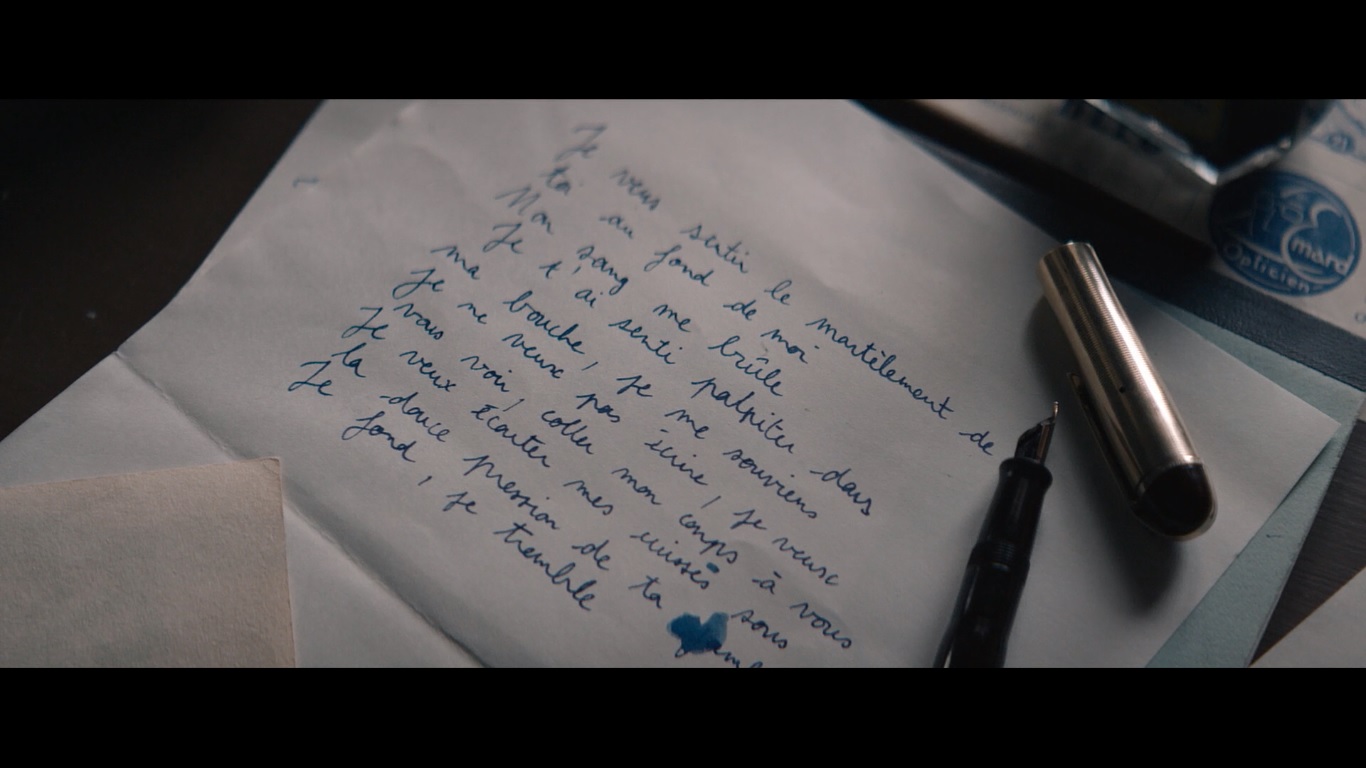 Je veux sentir le martèlement de
toi au fond de moi
Mon sang me brûle
Je t'ai senti palpiter dans
ma bouche, je me souviens
Je ne veux pas écrire, je veux
vous voir, coller mon corps à vous
Je veux écarter mes cuisses sous
la douce pression de ta
Je fond, je tremble
Emard
Opticien